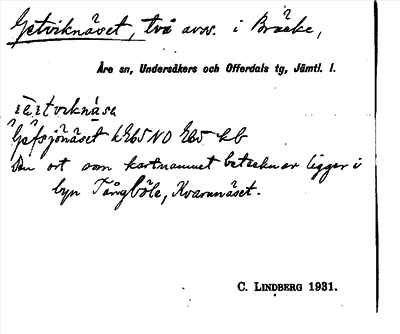 Getviknäset, två avsn. i Bräcke,
Åre sn, Undersåkers och Offerdals tg, Jämtl. l.
Gäfsjönäset
Den ort som kartnamnet betecknar ligger i
byn Tångböle, Kvarnnäset.
C. LINDBERG 1931.